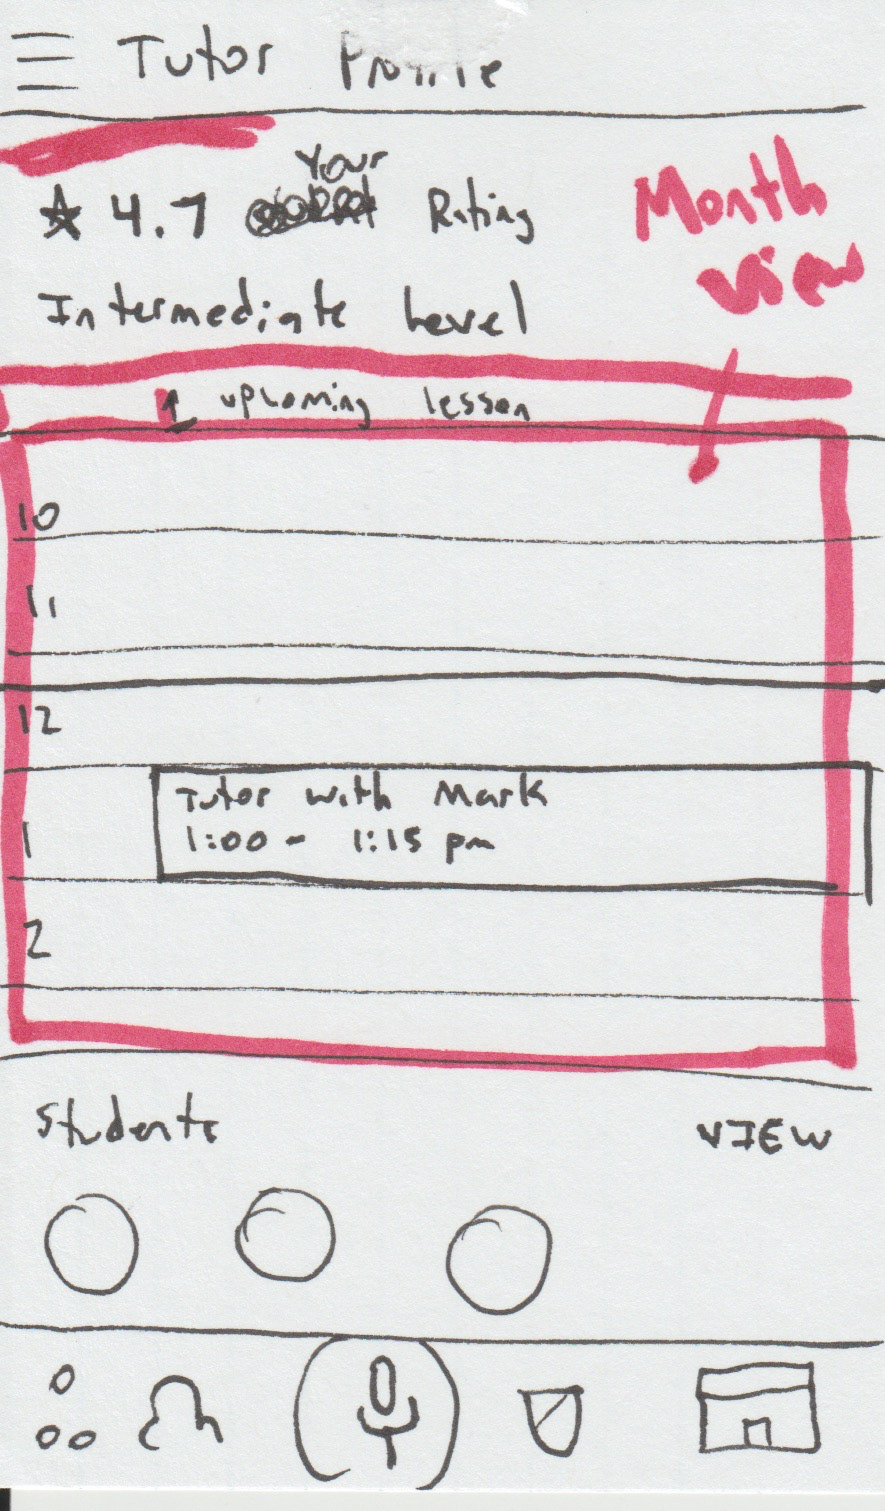 Tutor Profile
Your
4.7 Rating
Month
view
Intermediate Level
upcoming lesson
10
11
12
Tutor with Mark
1
1:00 - 1:15 pm
2
Students VIEW